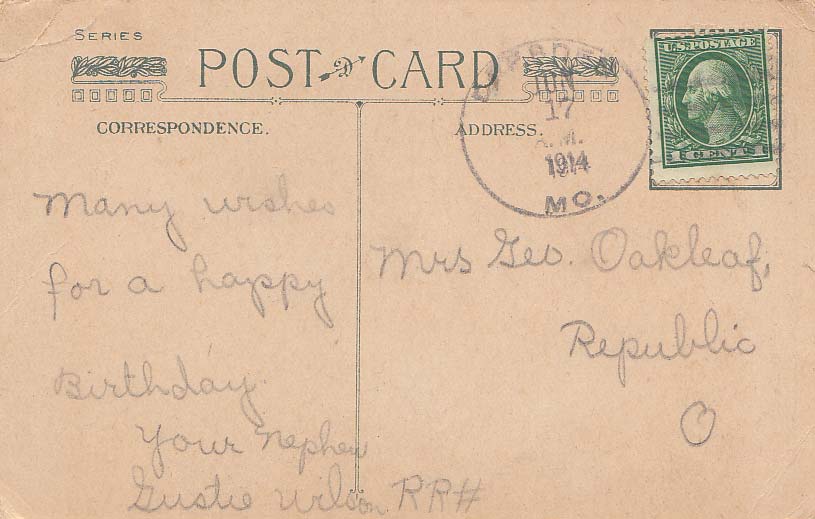 SERIES
POST CARD
CORRESPONDENCE.
ADDRESS.
JUN
17
A.M.
1914
MO.
U.S. POSTAGE
CENTS
Many wishes
for a happy
Birthday.
Your Nephew
Gustie Wilson RR#
Mrs Geo. Oakleaf,
Republic
O